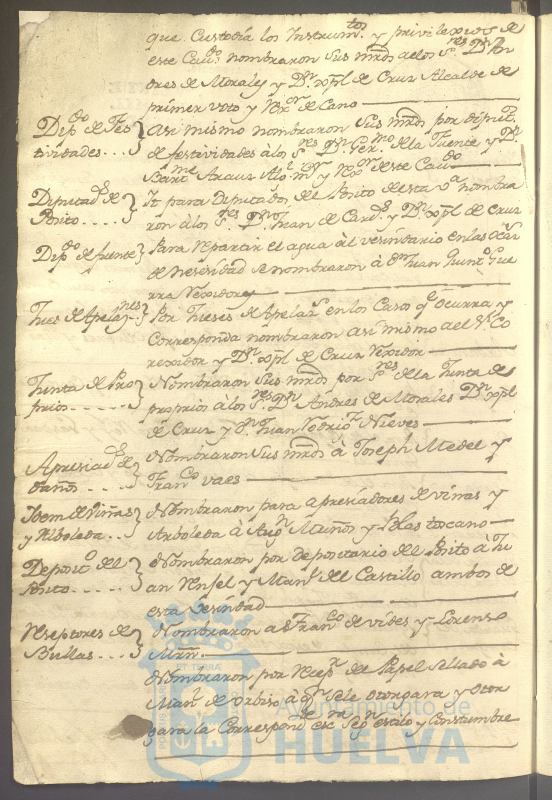 que Custodia los Instrumtos. y privilexios de
este Cavdo. nombraron sus mrds. a los Sres. Dn. An
dres de Morales y Dn. xpl. de Cruz Alcalde de
primer voto y de Cano
Dipdo. de Fes
tividades...
Asi mismo nombraron Sus mrds. por diputs.
de festividades a los Sres. Dn. Germo. de la Fuente y Dn.
Bartme. Arauz Alo. mr. y de este Cavdo.
Diputads. de
Posito....
It para Diputados del Posito de esta va. nombra
ron a los Sres. Dn. Juan de Card. y Dn. xpl. de Cruz
Dipdo. de fuente
Para Reparar el agua al vesindario en las
de nesesidad se nombraron à Dn. Juan Gue
rra Rexidores
Jues de Apelaznes.
Por Jueses de Apelazs. en los Casos qe. ocurra y
Corresponda nombraron asi mismo al Sr. Co
rexidor y Dn. xpl. de Cruz Rexidor
Junta de Pro
prios.....
Nombraron Sus mrds. por Sres. de la Junta de
proprios à los Sres. Dn. Andres de Morales Dn. xpl.
de Cruz y Dn. Juan Rodrigz. Nieves
Apresiads. de
daños....
Nombraron Sus mrds. à Joseph Medel y
Franco. vaes
Idem de Viñas
y Alboleda..
Nombraron para apresiadores de vinas y
Arboleda à Agn. Muños y Blas toscano
Deposito. del
Posito....
Nombraron por depocitario del Posito à Ju
an Rensel y Manl. del Castillo ambos de
esta vesindad
Reseptores de
Bullas...
Nombraron a Franco. de vides y Lorenso
Mrn.
Nombraron por Resepr. de Papel Sellado à
Manl. de Orbiso, à qn. se le otorgara y otor
gara la Correspondte. esra. segn. estilo y Costumbre
ET TERRAE
Ayuntamiento de
HUELVA